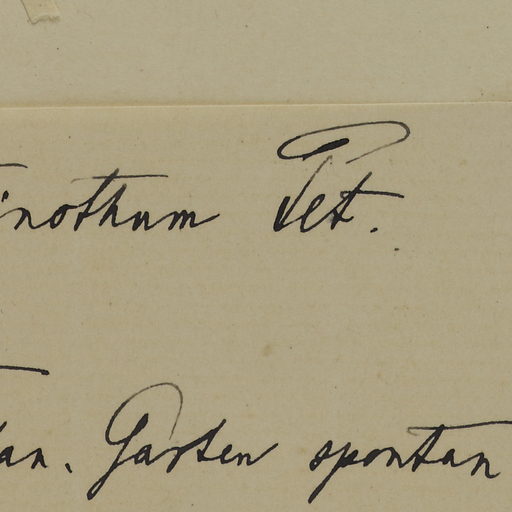 inothum Pet.
an. Garten spontan